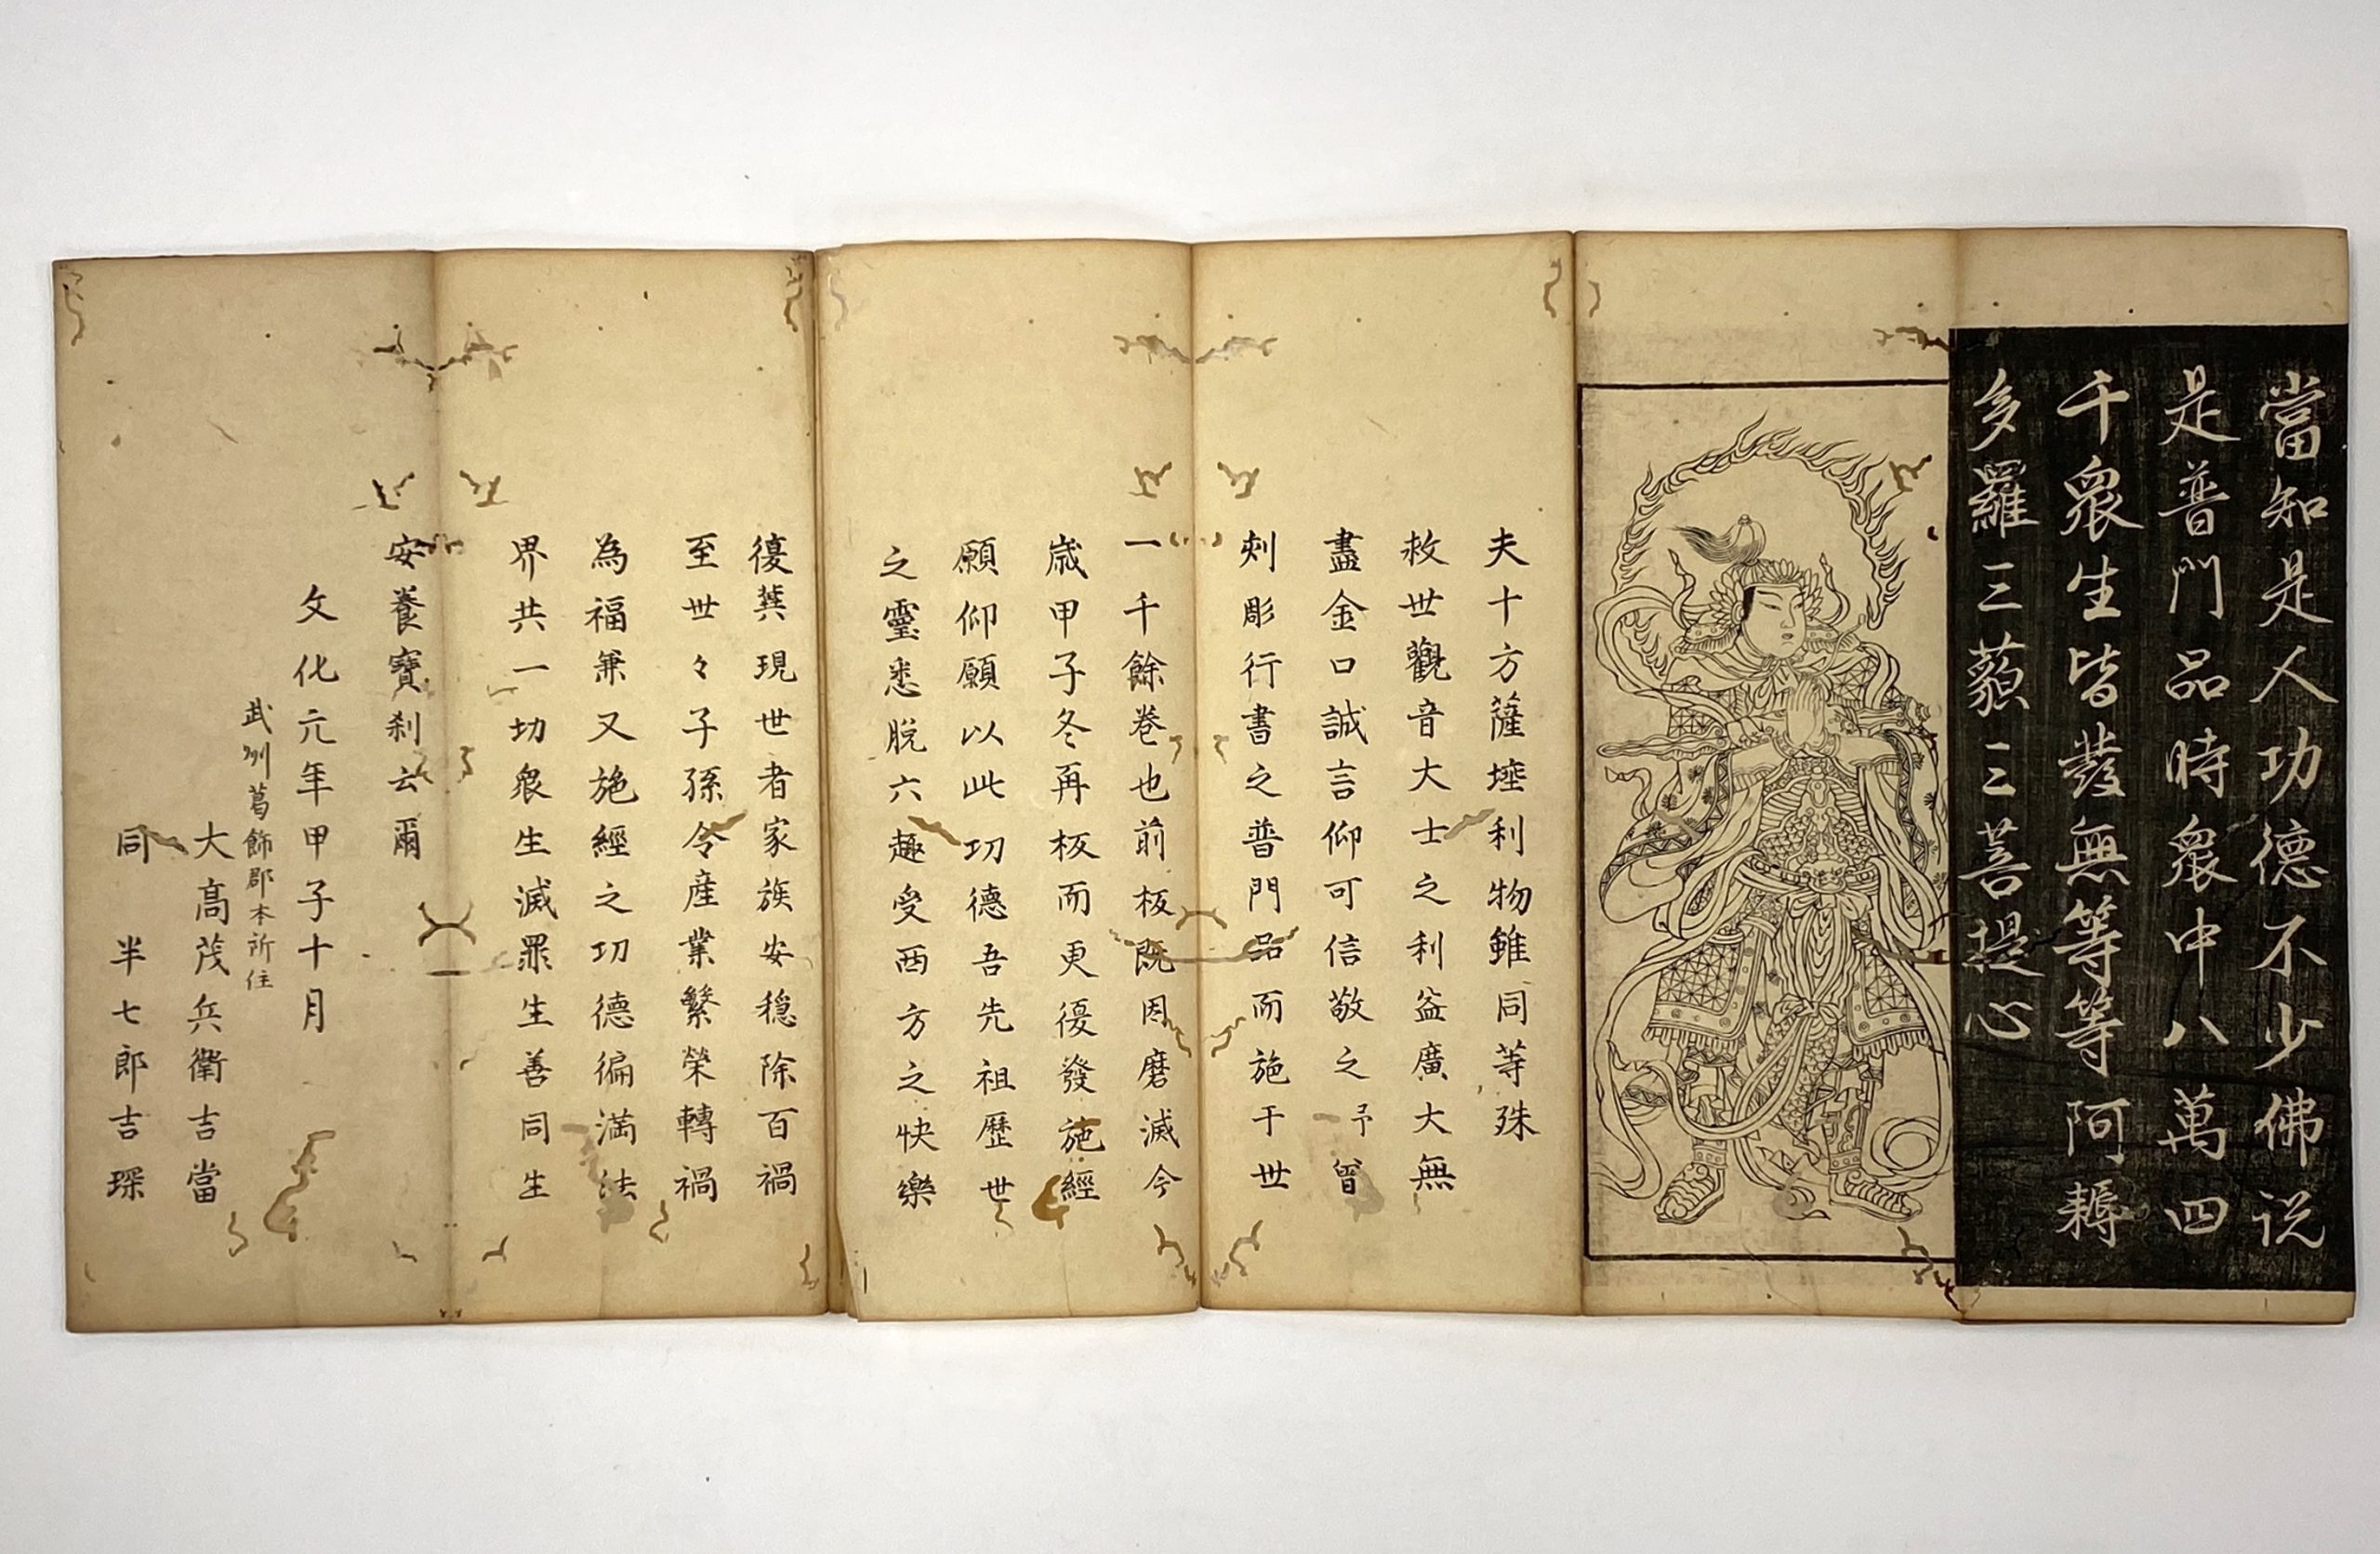 當知是人功德不少佛说
是普門品時衆中八萬四
千衆生皆發無等等阿耨
多羅三藐三菩提心
夫十方薩埵利物雖同等殊
救世觀音大士之利益廣大無
盡金口誠言仰可信敬之予曾
刾彫行書之普門品而施于世
一千餘巻也前板既因磨滅今
歳甲子冬再板而更復發施經
願仰願以此功德吾先祖歷世
之靈悉脱六趣受西方之快樂
復冀現世者家族安穏除百禍
至世々子孫令産業繁榮轉禍
為福兼又施經之功德徧満法
界共一切衆生滅罪生善同生
安養寶刹云爾
文化元年甲子十月
武州葛飾郡本所住
大髙茂兵衛吉當
同 半七郎吉琛